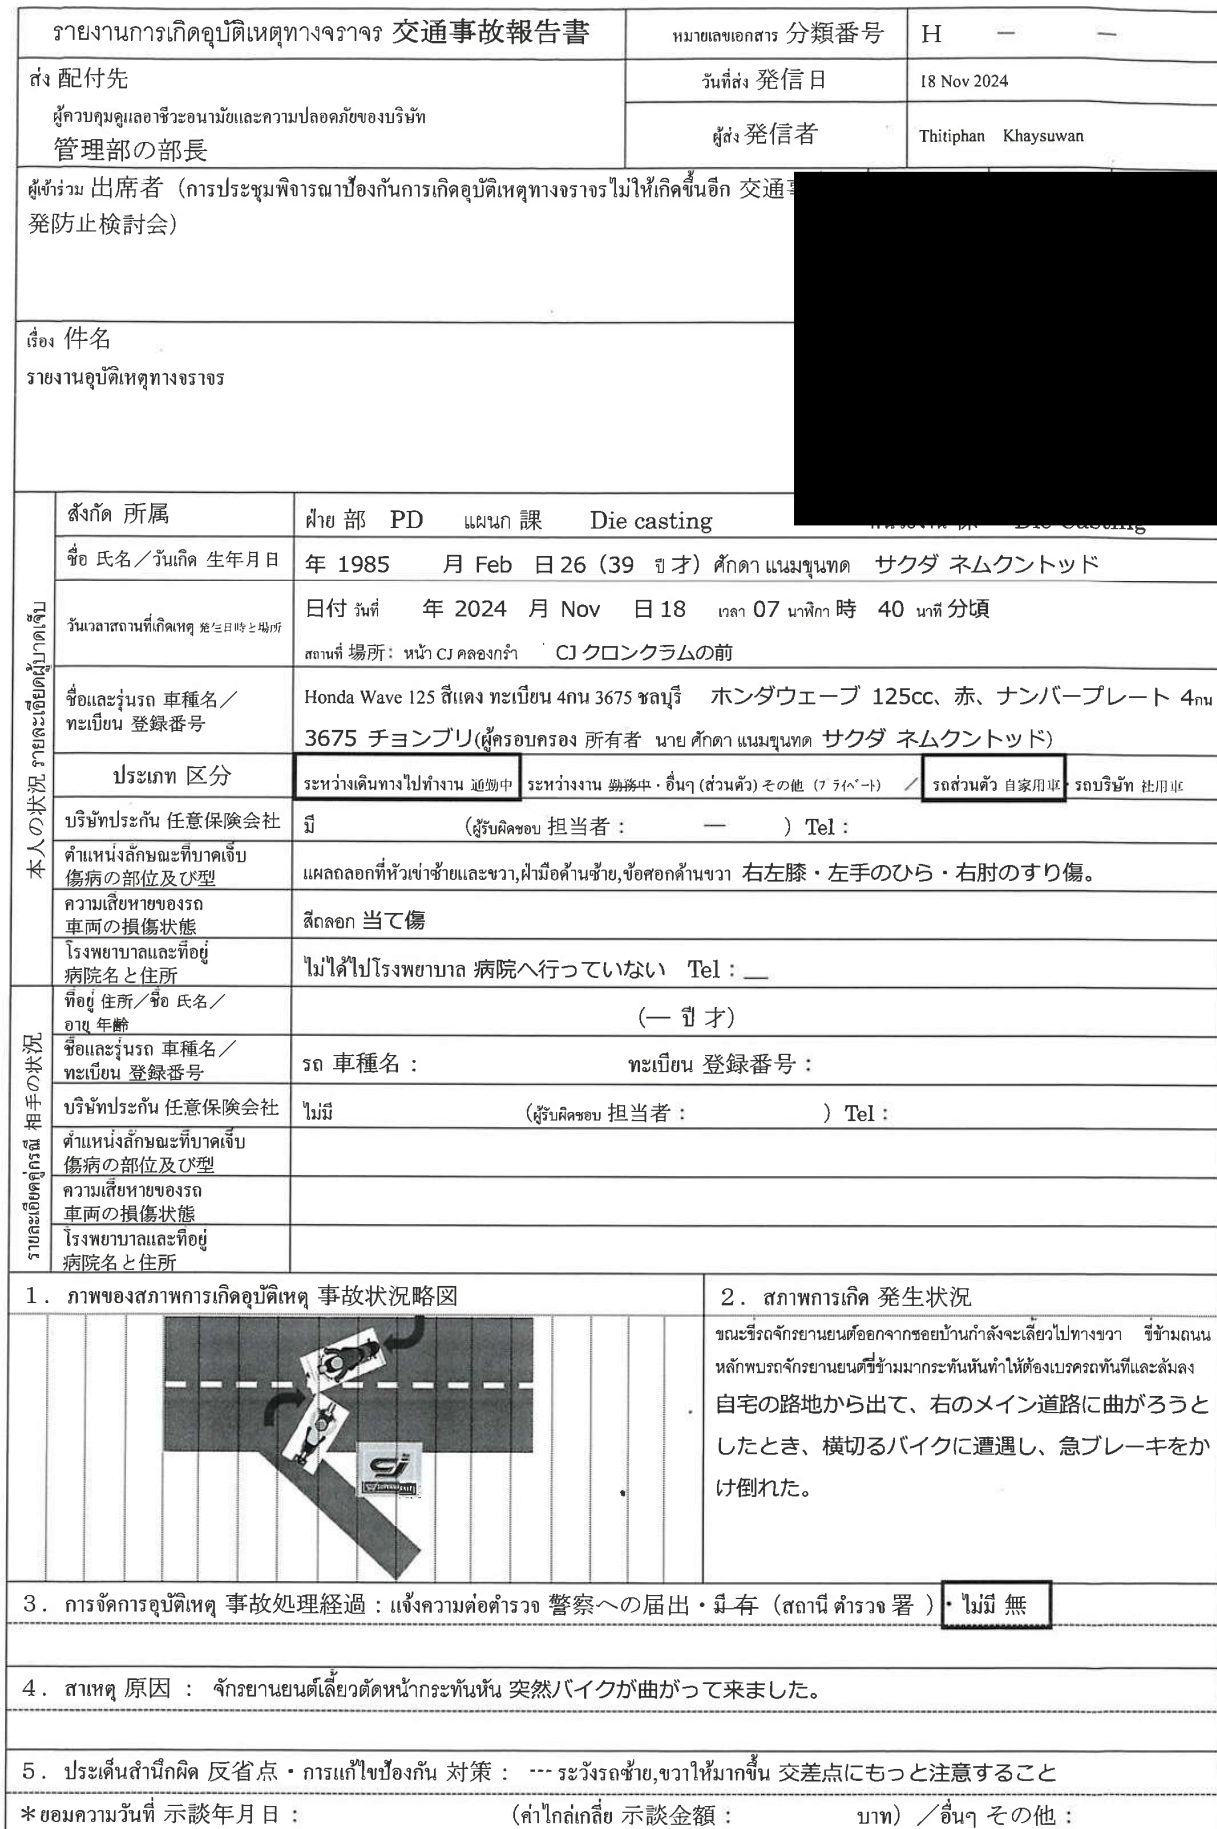 รายงานการเกิดอุบัติเหตุทางจราจร 交通事故報告書 หมายเลขเอกสาร 分類番号 H － －
ส่ง 配付先 วันที่ส่ง 発信日 18 Nov 2024
ผู้ควบคุมดูแลอาชีวะอนามัยและความปลอดภัยของบริษัท
管理部の部長 ผู้ส่ง 発信者 Thitiphan Khaysuwan
ผู้เข้าร่วม 出席者（การประชุมพิจารณาป้องกันการเกิดอุบัติเหตุทางจราจรไม่ให้เกิดขึ้นอีก 交通
発防止検討会）
เรื่อง 件名
รายงานอุบัติเหตุทางจราจร
本人の状況 รายละเอียดผู้บาดเจ็บ
สังกัด 所属 ฝ่าย 部 PD แผนก 課 Die casting Die Casting
ชื่อ 氏名／วันเกิด 生年月日 年 1985 月 Feb 日 26（39 ปี 才）ศักดา แนมขุนทด サクダ ネムクントッド
วันเวลาสถานที่เกิดเหตุ 発生日時と場所 日付 วันที่ 年 2024 月 Nov 日 18 เวลา 07 นาฬิกา 時 40 นาที 分頃
สถานที่ 場所：หน้า CJ คลองกรำ CJ クロンクラムの前
ชื่อและรุ่นรถ 車種名／ Honda Wave 125 สีแดง ทะเบียน 4กน 3675 ชลบุรี ホンダウェーブ 125cc、赤、ナンバープレート 4กน
ทะเบียน 登録番号 3675 チョンブリ(ผู้ครอบครอง 所有者 นาย ศักดา แนมขุนทด サクダ ネムクントッド)
ประเภท 区分 ระหว่างเดินทางไปทำงาน 通勤中 ระหว่างงาน 勤務中・อื่นๆ (ส่วนตัว) その他（プライベート） ／ รถส่วนตัว 自家用車・รถบริษัท 社用車
บริษัทประกัน 任意保険会社 มี （ผู้รับผิดชอบ 担当者： － ）Tel：
ตำแหน่งลักษณะที่บาดเจ็บ
傷病の部位及び型 แผลถลอกที่หัวเข่าซ้ายและขวา,ฝ่ามือด้านซ้าย,ข้อศอกด้านขวา 右左膝・左手のひら・右肘のすり傷。
ความเสียหายของรถ
車両の損傷状態 สีถลอก 当て傷
โรงพยาบาลและที่อยู่
病院名と住所 ไม่ได้ไปโรงพยาบาล 病院へ行っていない Tel：__
รายละเอียดคู่กรณี 相手の状況
ที่อยู่ 住所／ชื่อ 氏名／
อายุ 年齢 （— ปี 才）
ชื่อและรุ่นรถ 車種名／
ทะเบียน 登録番号 รถ 車種名： ทะเบียน 登録番号：
บริษัทประกัน 任意保険会社 ไม่มี （ผู้รับผิดชอบ 担当者： ）Tel：
ตำแหน่งลักษณะที่บาดเจ็บ
傷病の部位及び型
ความเสียหายของรถ
車両の損傷状態
โรงพยาบาลและที่อยู่
病院名と住所
1．ภาพของสภาพการเกิดอุบัติเหตุ 事故状況略図
CJ
2．สภาพการเกิด 発生状況
ขณะขี่รถจักรยานยนต์ออกจากซอยบ้านกำลังจะเลี้ยวไปทางขวา ขี่ข้ามถนน
หลักพบรถจักรยานยนต์ขี่ข้ามมากระทันหันทำให้ต้องเบรครถทันทีและล้มลง
自宅の路地から出て、右のメイン道路に曲がろうと
したとき、横切るバイクに遭遇し、急ブレーキをか
け倒れた。
3．การจัดการอุบัติเหตุ 事故処理経過：แจ้งความต่อตำรวจ 警察への届出・มี 有（สถานี ตำรวจ 署 ）・ไม่มี 無
4．สาเหตุ 原因 ： จักรยานยนต์เลี้ยวตัดหน้ากระทันหัน 突然バイクが曲がって来ました。
5．ประเด็นสำนึกผิด 反省点・การแก้ไขป้องกัน 対策： --- ระวังรถซ้าย,ขวาให้มากขึ้น 交差点にもっと注意すること
＊ยอมความวันที่ 示談年月日： （ค่าไกล่เกลี่ย 示談金額： บาท）／อื่นๆ その他：